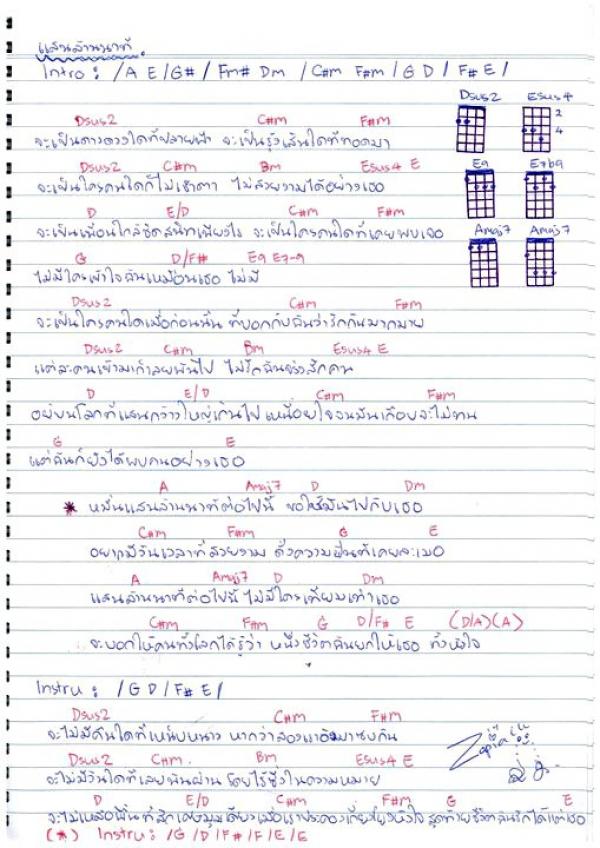 แสนล้านนาที
Intro : /A E/G# / Fm# Dm / C#m F#m / G D / F# E /
Dsus2 Esus4
2
4
Dsus2 C#m F#m
จะเป็นดาวดวงใดที่ปลายฟ้า จะเป็นรุ้งเส้นใดที่ทอดมา
Dsus2 C#m Bm Esus4 E
E9 E7b9
จะเป็นใครคนใดก็ไม่เข้าตา ไม่สวยงามได้อย่างเธอ
D E/D C#m F#m
จะเป็นเพื่อนใกล้ชิดสนิทเพียงไร จะเป็นใครคนใดที่เคยพบเจอ
Amaj7 Amaj7
G D/F# E9 E7-9
ไม่มีใครเข้าใจฉันเหมือนเธอ ไม่มี
Dsus2 C#m F#m
จะเป็นใครคนใดเมื่อก่อนนั้น ที่บอกกับฉันว่ารักกันมากมาย
Dsus2 C#m Bm Esus4 E
แต่ละคนเข้ามาแล้วเลยผ่านไป ไม่รักฉันจริงสักคน
D E/D C#m F#m
อยู่บนโลกที่แสนกว้างใหญ่เกินไป เหนื่อยใจจนฉันเกือบจะไม่ทน
G E
แต่ฉันก็ยังได้พบคนอย่างเธอ
A Amaj7 D Dm
* หมื่นแสนล้านนาทีต่อไปนี้ ขอให้มันไปกับเธอ
C#m F#m G E
อยากมีวันเวลาที่สวยงาม ดั่งความฝันที่เคยละเมอ
A Amaj7 D Dm
แสนล้านนาทีต่อไปนี้ ไม่มีใครเทียมเท่าเธอ
C#m F#m G D/F# E (D/A) (A)
จะบอกให้คนทั้งโลกได้รู้ว่า หนึ่งชีวิตฉันยกให้เธอ ทั้งหัวใจ
Instru : /G D / F# E /
Dsus2 C#m F#m
จะไม่มีคืนใดที่เหน็บหนาว หากว่าสองเรายังมาซบกัน
Dsus2 C#m Bm Esus4 E
จะไม่มีวันใดที่เลยผันผ่าน โดยไร้ซึ่งในความหมาย
D E/D C#m F#m G E
จะไม่เหลือพื้นที่สักเศษมุมเดียว เมื่อเราประคองเกี่ยวโยงหัวใจ สุดท้ายชีวิตฉันรักได้แต่เธอ
(*) Instru : /G /D /F# /F /E /E